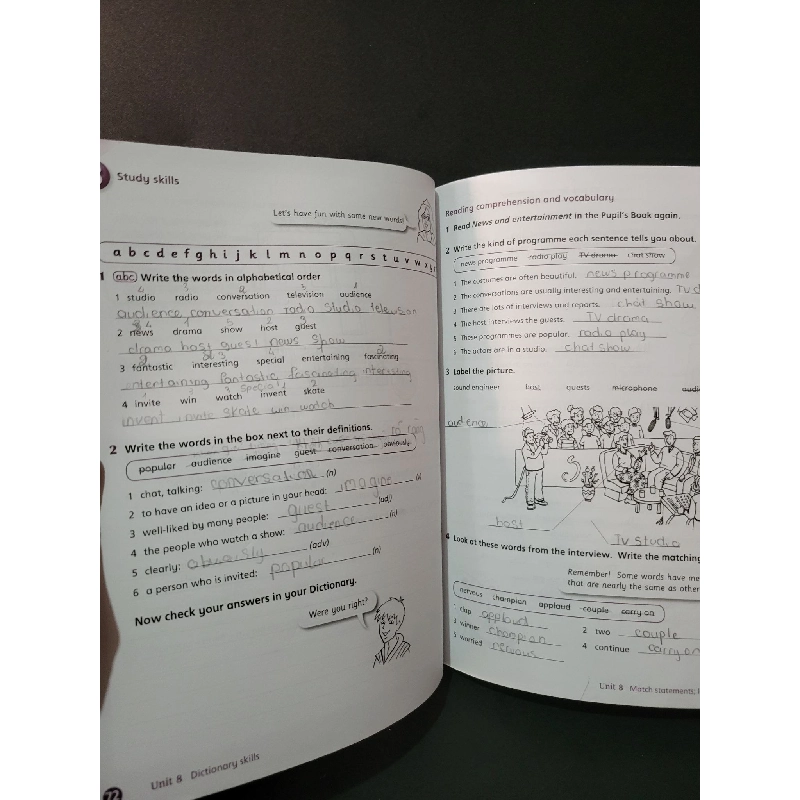 Study skills
Let's have fun with some new words!
a b c d e f g h i j k l m n o p q r s t u v w x y
1 abc Write the words in alphabetical order
1 studio radio conversation television audience
audience conversation radio studio television
2 news drama show host guest
drama host guest news show
3 fantastic interesting special entertaining fascinating
entertaining fantastic fascinating interesting
special
4 invite win watch invent skate
invent invite skate win watch
2 Write the words in the box next to their definitions.
popular audience imagine guest conversation obviously
1 chat, talking: conversation (n)
2 to have an idea or a picture in your head: imagine
3 well-liked by many people: guest (adj)
4 the people who watch a show: audience (n)
5 clearly: (adv)
6 a person who is invited: popular (n)
Now check your answers in your Dictionary.
Were you right?
72 Unit 8 Dictionary skills
Reading comprehension and vocabulary
1 Read News and entertainment in the Pupil's Book again.
2 Write the kind of programme each sentence tells you about.
news programme radio play TV drama chat show
1 The costumes are often beautiful. news programme
2 The conversations are usually interesting and entertaining. TV d
3 There are lots of interviews and reports. chat show
4 The host interviews the guests. TV drama
5 These programmes are popular. radio play
6 The actors are in a studio. chat show
3 Label the picture.
sound engineer host guests microphone audi
audience
host
TV studio
4 Look at these words from the interview. Write the matching
Remember! Some words have me
that are nearly the same as other
nervous champion applaud couple carry on
1 clap applaud 2 two couple
3 winner champion 4 continue carry on
5 worried nervous
Unit 8 Match statements;